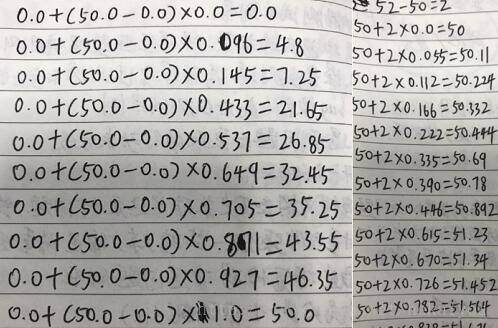 0.0+(50.0-0.0)×0.0=0.0
0.0+(50.0-0.0)×0.096=4.8
0.0+(50.0-0.0)×0.145=7.25
0.0+(50.0-0.0)×0.433=21.65
0.0+(50.0-0.0)×0.537=26.85
0.0+(50.0-0.0)×0.649=32.45
0.0+(50.0-0.0)×0.705=35.25
0.0+(50.0-0.0)×0.871=43.55
0.0+(50.0-0.0)×0.927=46.35
0.0+(50.0-0.0)×1.0=50.0
52-50=2
50+2×0.0=50
50+2×0.055=50.11
50+2×0.112=50.224
50+2×0.166=50.332
50+2×0.222=50.444
50+2×0.335=50.69
50+2×0.390=50.78
50+2×0.446=50.892
50+2×0.615=51.23
50+2×0.670=51.34
50+2×0.726=51.452
50+2×0.782=51.564